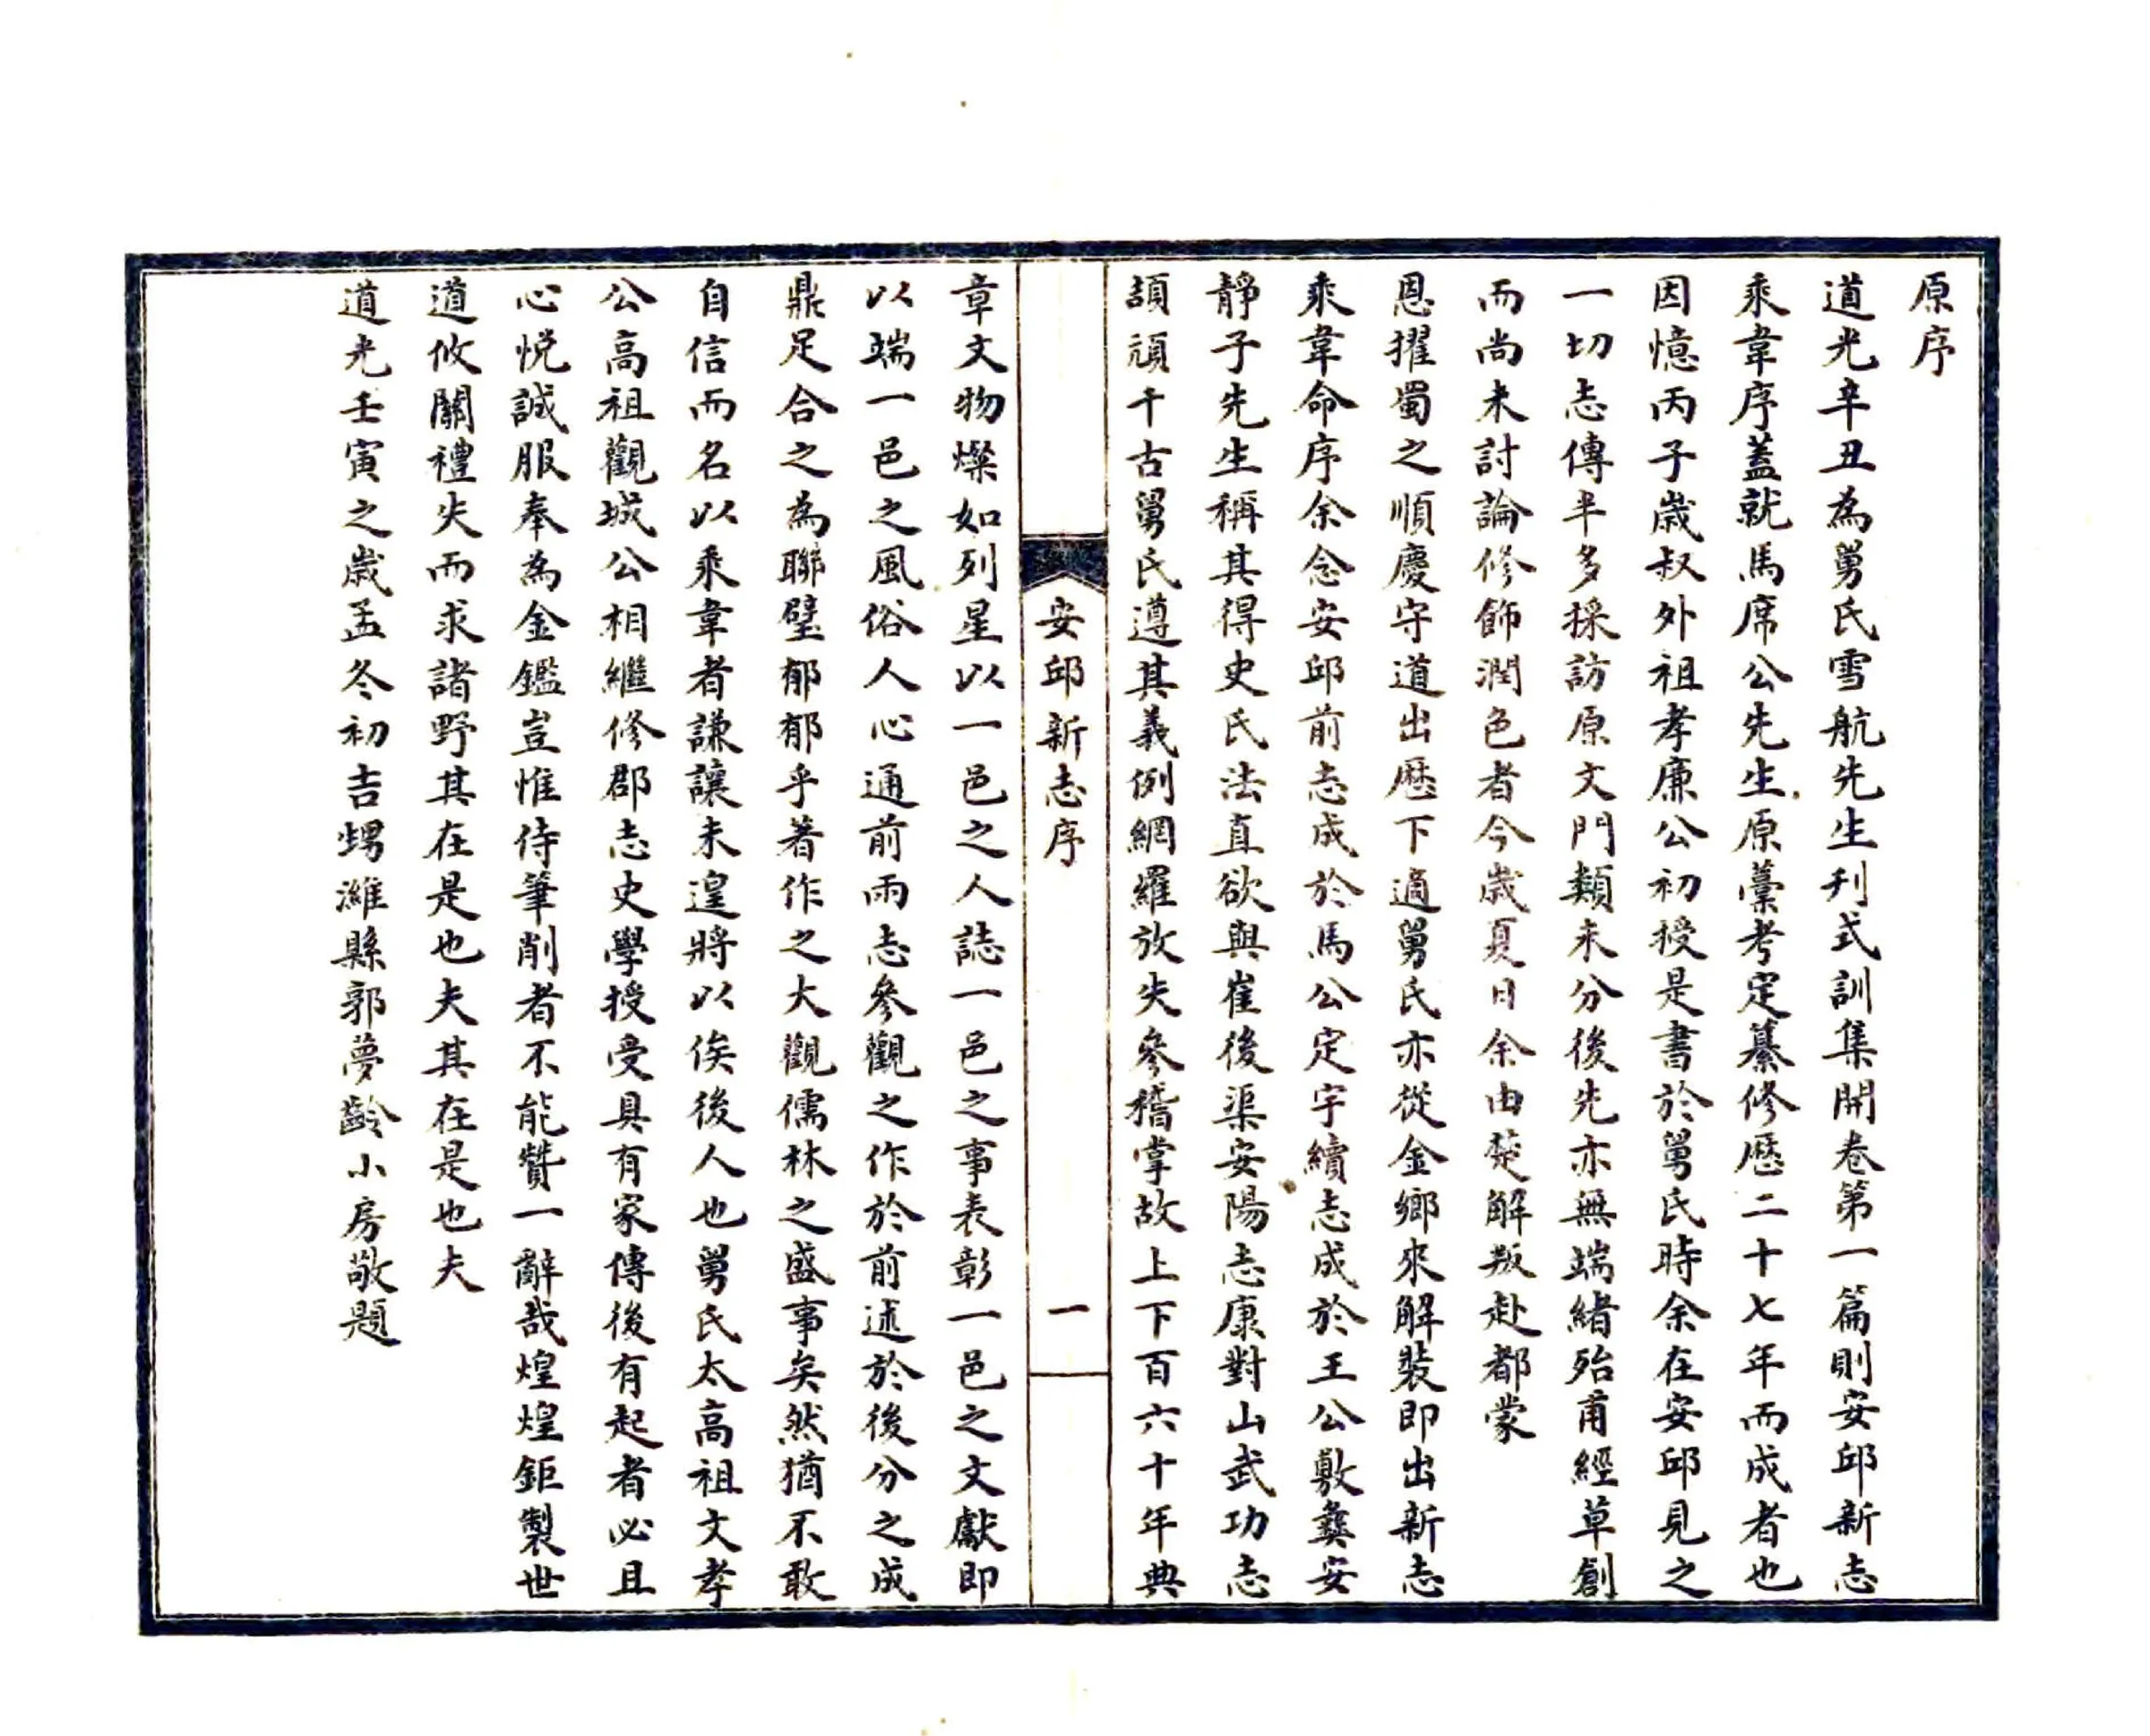 原序
道光辛丑為舅氏雪航先生刋式訓集開卷第一篇則安邱新志
乘韋序蓋就馬席公先生原藁考定纂修歷二十七年而成者也
因憶丙子歲叔外祖孝廉公初授是書於舅氏時余在安邱見之
一切志傳半多採訪原文門類未分後先亦無端緒殆甫經草創
而尚未討論修飾潤色者今歲夏日余由楚解叛赴都蒙
恩擢蜀之順慶守道出歷下適舅氏亦從金鄉來解裝即出新志
乘韋命序余念安邱前志成於馬公定宇續志成於王公斆彝安
靜子先生稱其得史氏法直欲與崔後渠安陽志康對山武功志
頡頏千古舅氏遵其義例網羅放失參稽掌故上下百六十年典
安邱新志序
一
章文物燦如列星以一邑之人誌一邑之事表彰一邑之文獻即
以端一邑之風俗人心通前兩志參觀之作於前述於後分之成
鼎足合之為聯璧郁郁乎著作之大觀儒林之盛事矣然猶不敢
自信而名以乘韋者謙讓未遑將以俟後人也舅氏太高祖文孝
公高祖觀城公相繼修郡志史學授受具有家傳後有起者必且
心悅誠服奉為金鑑豈惟侍筆削者不能贊一辭哉煌煌鉅製世
道攸關禮失而求諸野其在是也夫其在是也夫
道光壬寅之歲孟冬初吉甥濰縣郭夢齡小房敬題